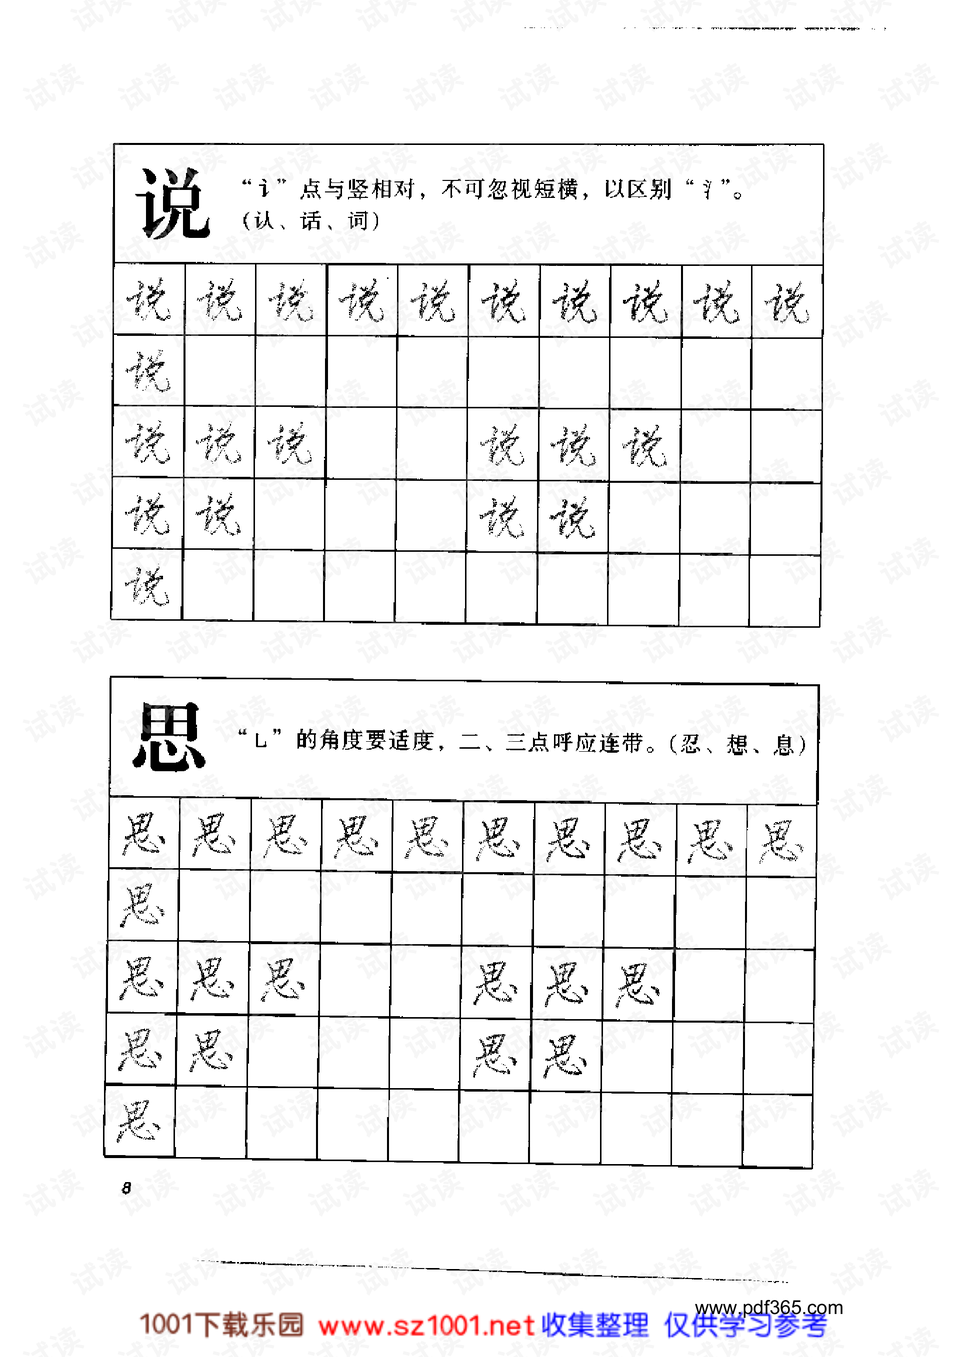 说 “讠”点与竖相对，不可忽视短横，以区别“氵”。
(认、话、词)
说 说 说 说 说 说 说 说 说 说
说
说 说 说 说 说 说
说 说 说 说
说
思 “乚”的角度要适度，二、三点呼应连带。(忍、想、息)
思 思 思 思 思 思 思 思 思 思
思
思 思 思 思 思 思
思 思 思 思
思
8
www.pdf365.com
1001下载乐园 www.sz1001.net 收集整理 仅供学习参考
试读